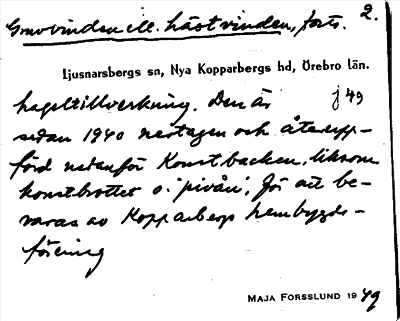 Gruvvinden ell. hästvinden, forts. 2.
Ljusnarsbergs sn, Nya Kopparbergs hd, Örebro län.
hageltillverkning. Den är j 49
sedan 1940 nertagen och återupp-
förd nedanför Konstbacken, liksom
konstbrottet o. 'pivån', för att be-
varas av Kopparbergs hembygds-
förening
MAJA FORSSLUND 1949